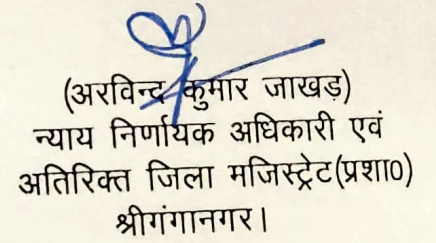 (अरविन्द कुमार जाखड़)
न्याय निर्णायक अधिकारी एवं
अतिरिक्त जिला मजिस्ट्रेट(प्रशा0)
श्रीगंगानगर।